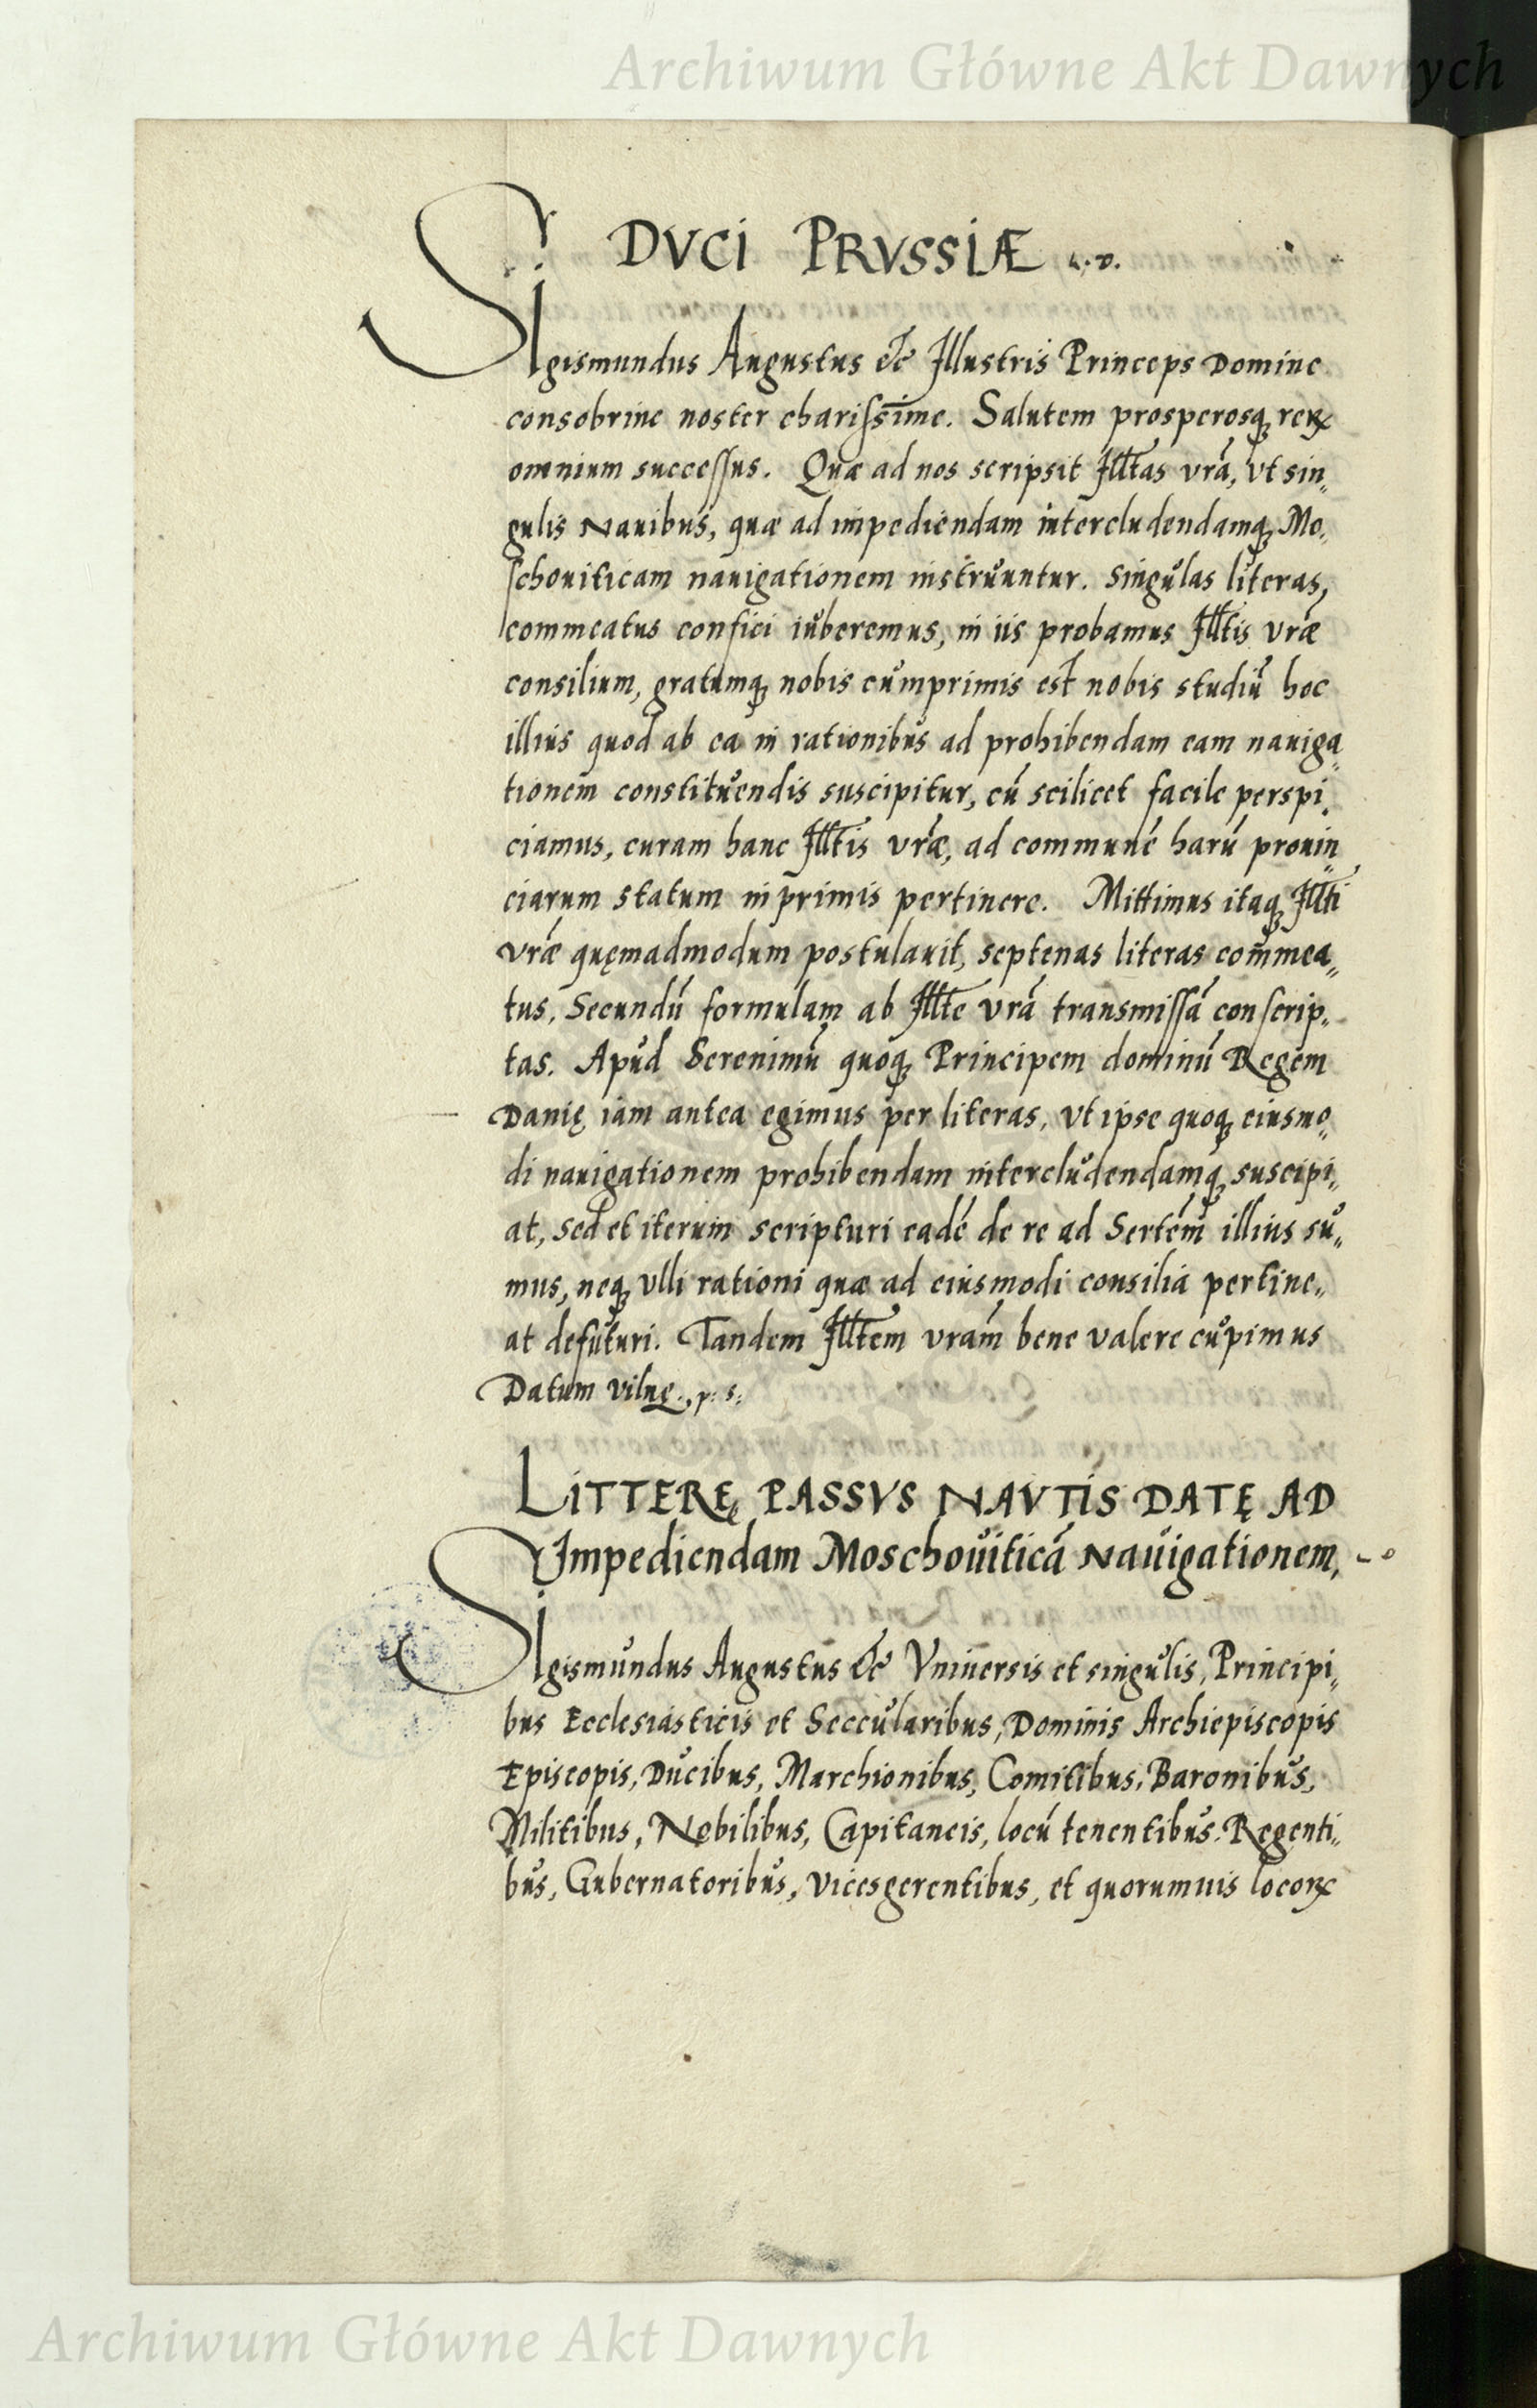 Archiwum Główne Akt Dawnych
DVCI PRVSSIÆ
SIgismundus Augustus etc Illustris Princeps Domine
consobrine noster charissime. Salutem prosperosq; reꝝ
omnium successus. Quæ ad nos scripsit Illtas vrã, vt sin„
gulis Nauibus, quæ ad impediendam intercludendamq; Mo„
schouiticam nauigationem instruuntur. singulas literas,
commeatus confici iuberemus, in iis probamus Illtis vræ
consilium, gratumq; nobis cumprimis est nobis studiũ hoc
illius quod ab ea in rationibus ad prohibendam eam nauiga„
tionem constituendis suscipitur, cũ scilicet facile perspi„
ciamus, curam hanc Illtis vræ, ad communẽ harũ prouin„
ciarum statum in primis pertinere. Mittimus itaq; Illti
vræ quęmadmodum postulauit, septenas literas com̃mea„
tus, Secundũ formulam ab Illte vrã transmissã conscrip„
tas. Apud Serenimũ quoq; Principem dominũ Regem
Danię iam antea egimus per literas, vt ipse quoq; eiusmo„
di nauigationem prohibendam intercludendamq; suscipi„
at, sed et iterum scripturi eadẽ de re ad Sertẽm illius su„
mus, neq; vlli rationi quæ ad eiusmodi consilia pertine„
at defuturi. Tandem Illtem vram̃ bene valere cupimus
Datum vilnę., p: s:
LITTERĘ PASSVS NAVTIS DATĘ AD
Impediendam Moschouiticã Nauigationem,
SIgismundus Augustus etc Vniuersis et singulis, Principi„
bus Ecclesiasticis et Seccularibus, Dominis Archiepiscopis
Episcopis, Ducibus, Marchionibus, Comitibus, Baronibus,
Militibus, Nobilibus, Capitaneis, locũ tenentibus, Regenti„
bus, Gubernatoribus, vicesgerentibus, et quorumuis locoꝝ
Archiwum Główne Akt Dawnych